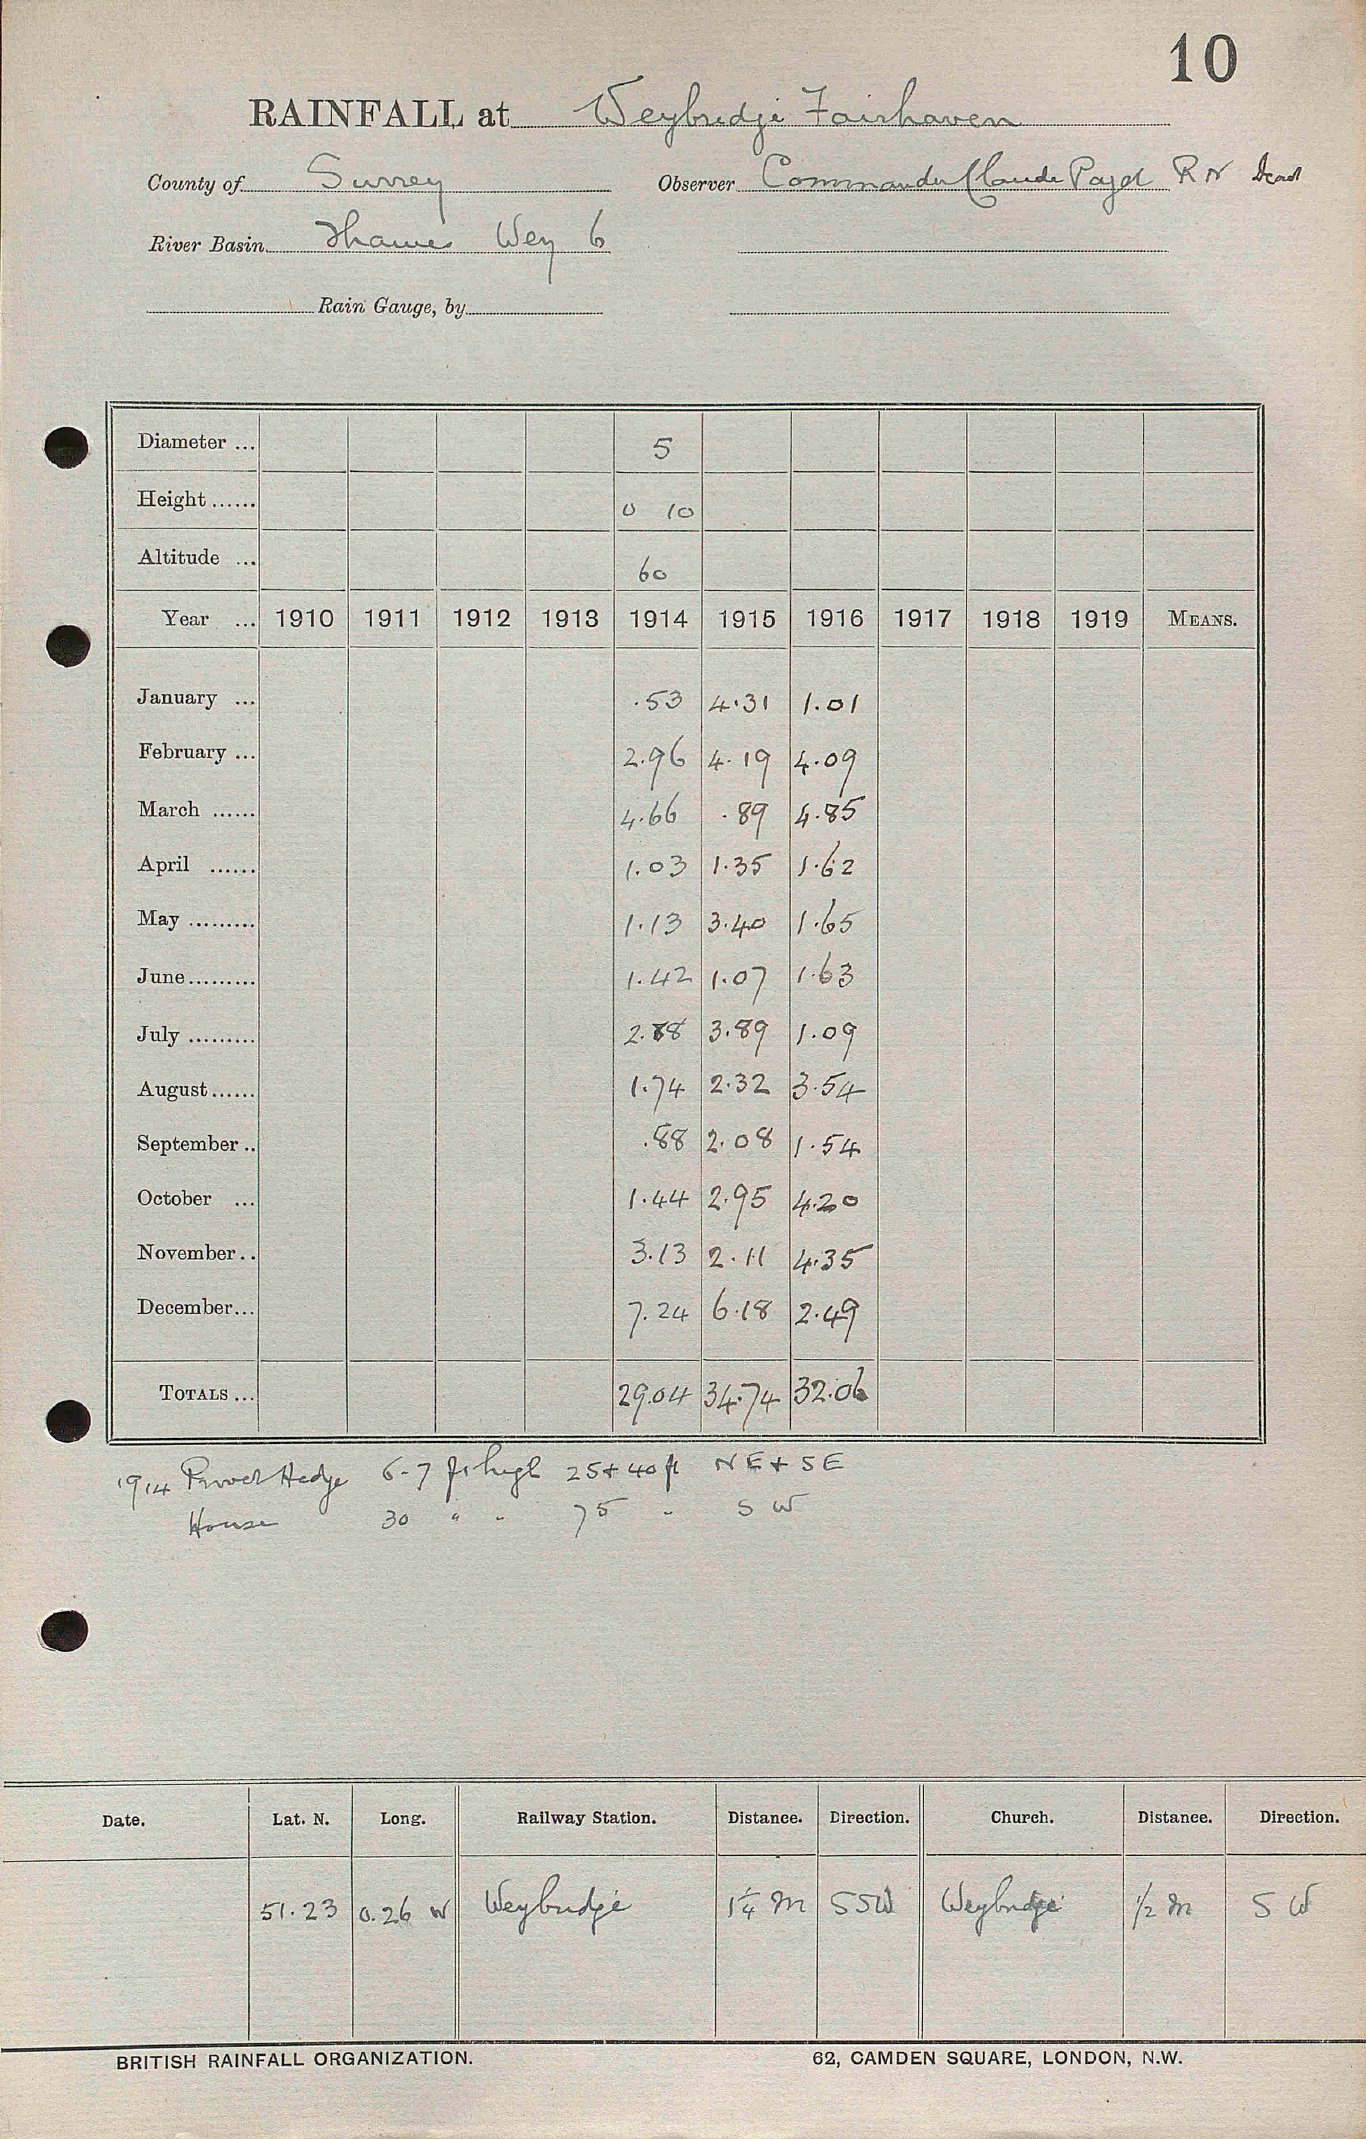 10
RAINFALL at Weybridge Fairhaven
County of Surrey Observer Commander Claude Paget R N Dead
River Basin Thames Wey 6
Rain Gauge, by
Diameter ... 5
Height ...... 0 10
Altitude ... 60
Year ... 1910 1911 1912 1913 1914 1915 1916 1917 1918 1919 MEANS.
January ... .53 4.31 1.01
February ... 2.96 4.19 4.09
March ...... 4.66 .89 4.85
April ...... 1.03 1.35 1.62
May ......... 1.13 3.40 1.65
June ......... 1.42 1.07 1.63
July ......... 2.88 3.89 1.09
August ...... 1.74 2.32 3.54
September .. .88 2.08 1.54
October ... 1.44 2.95 4.20
November .. 3.13 2.11 4.35
December ... 7.24 6.18 2.49
TOTALS ... 29.04 34.74 32.06
1914 Privet Hedge 6-7 ft high 25 + 40 ft N E + S E
House 30 " " 75 " S W
Date. Lat. N. Long. Railway Station. Distance. Direction. Church. Distance. Direction.
51.23 0.26 W Weybridge 1¼ m SSW Weybridge ½ m S W
BRITISH RAINFALL ORGANIZATION. 62, CAMDEN SQUARE, LONDON, N.W.